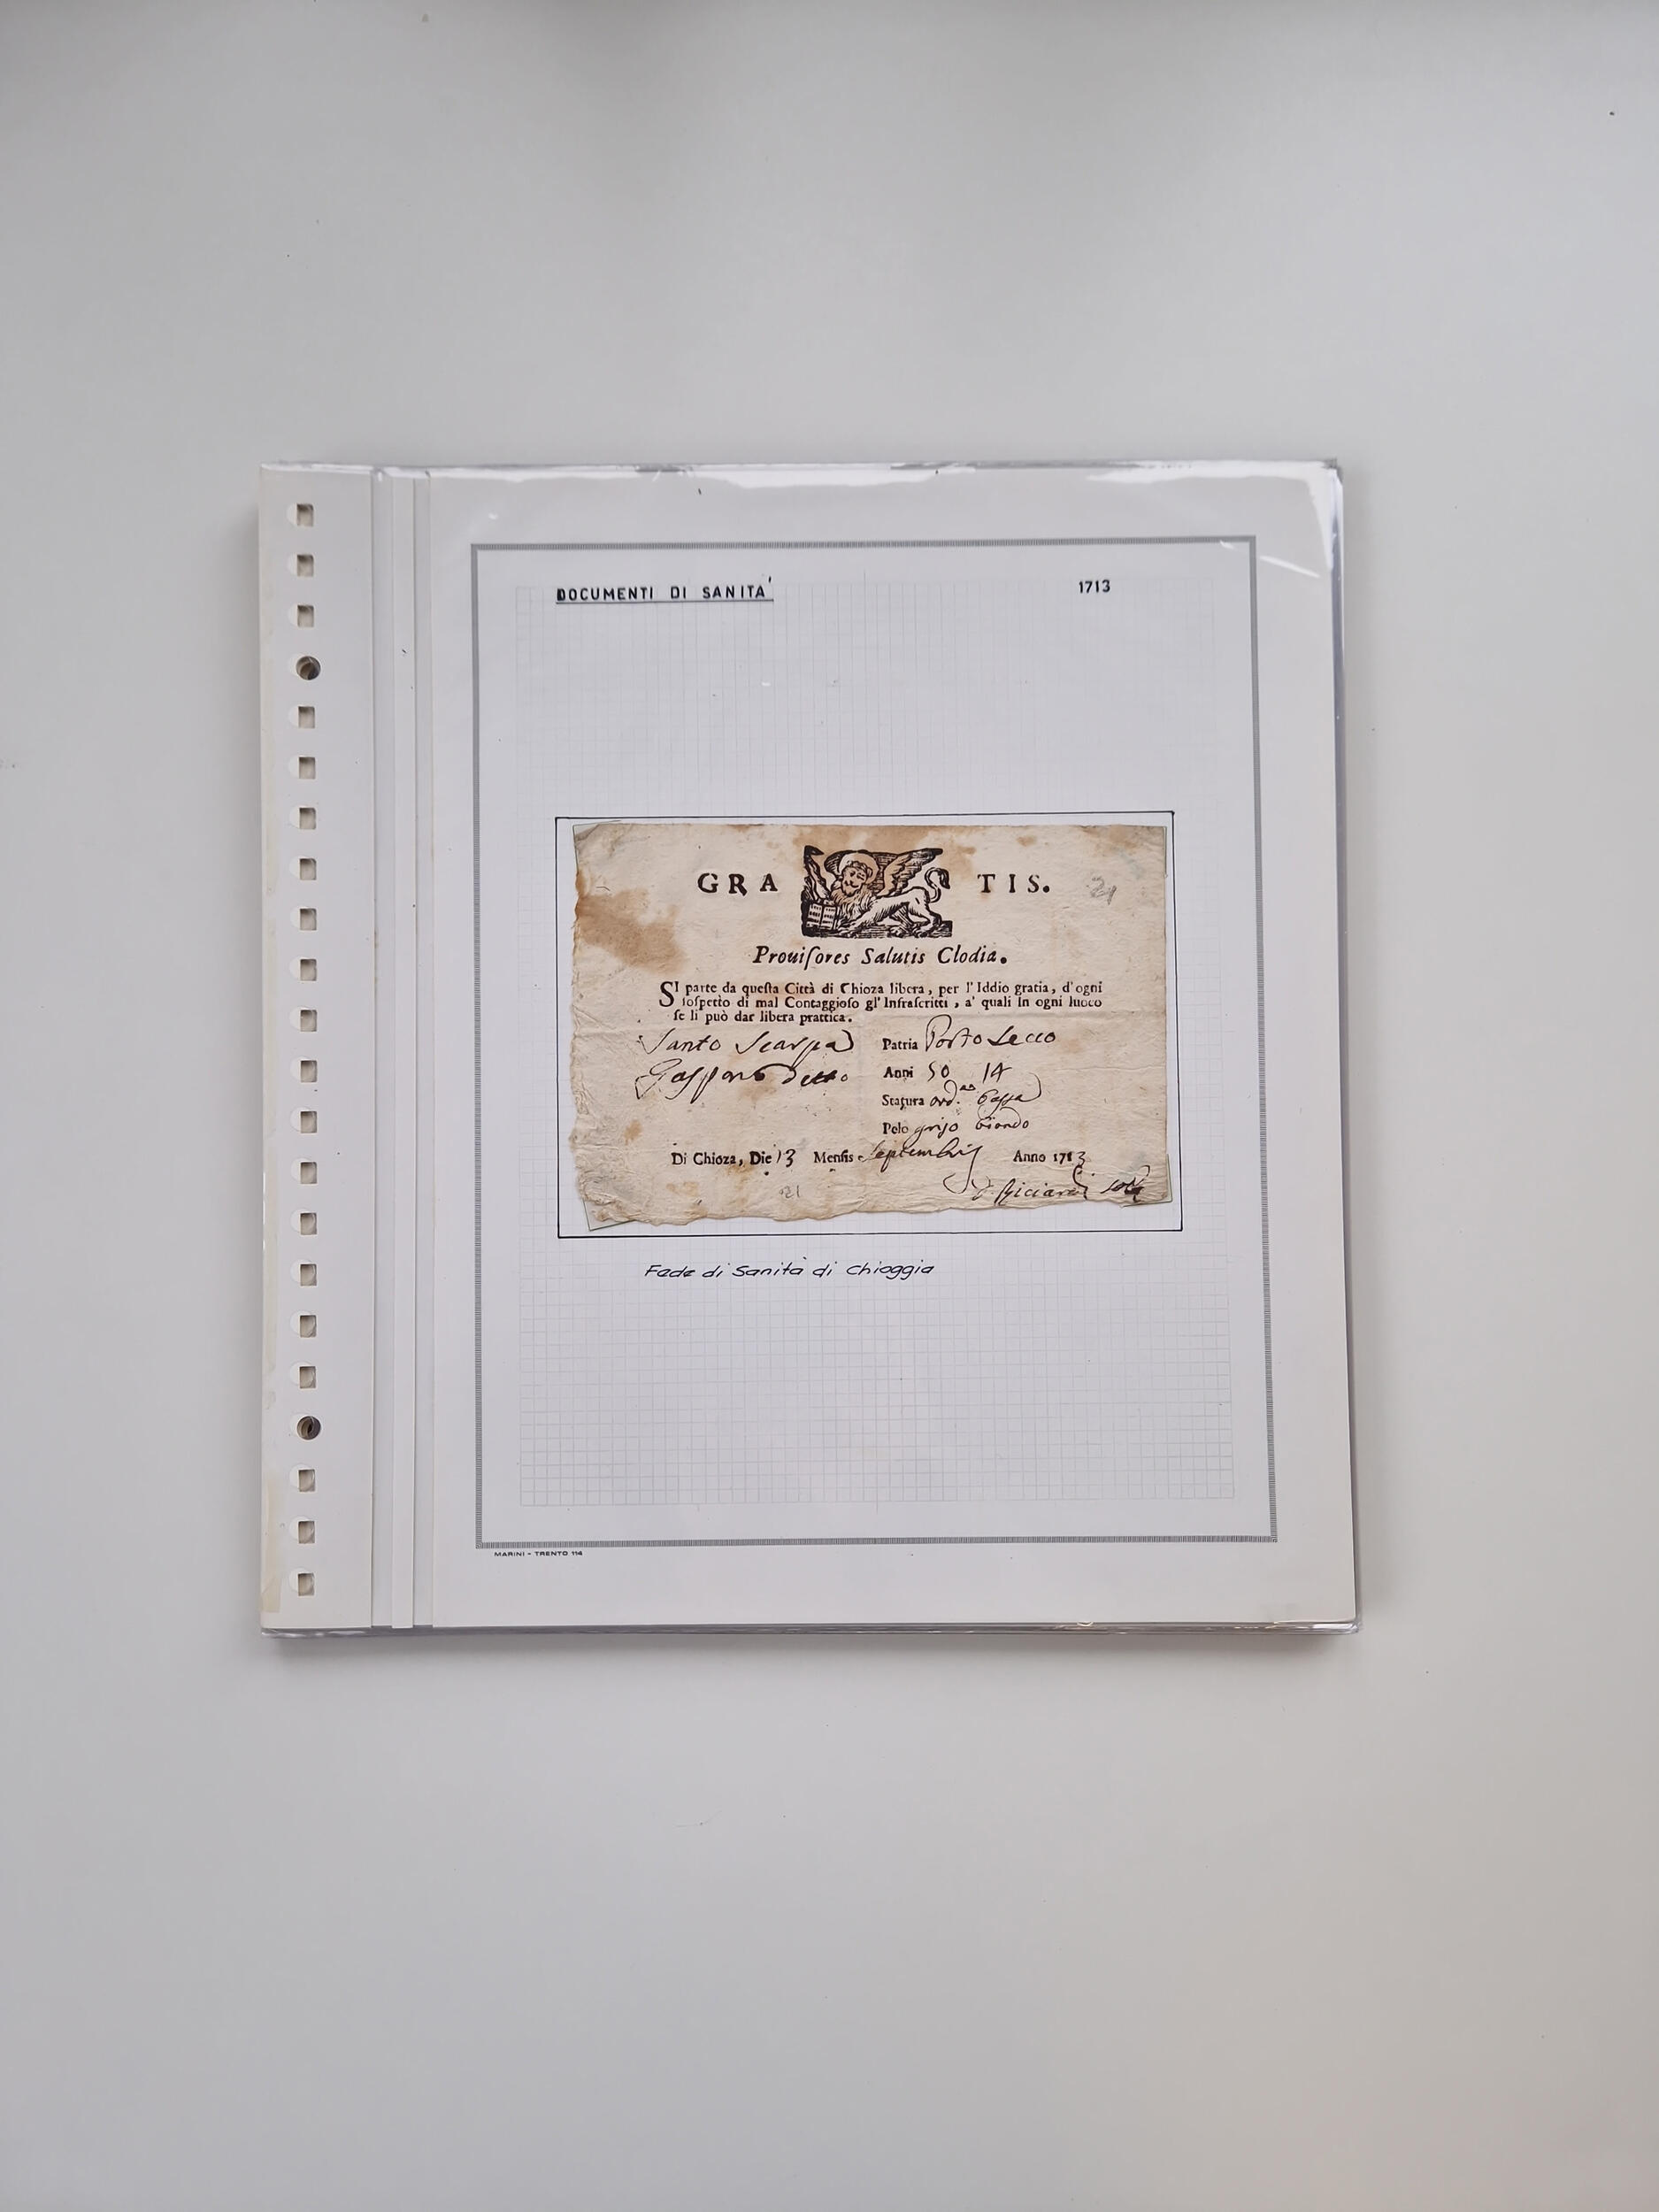 DOCUMENTI DI SANITA'
1713
GRA TIS.
21
Prouiſores Salutis Clodiæ.
SI parte da queſta Città di Chioza libera, per l'Iddio gratia, d'ogni
ſoſpetto di mal Contaggioſo gl' Infraſcritti, a' quali in ogni luoco
ſe li può dar libera prattica.
Santo Scarpa
Patria Porto Secco
Detto
Anni 50 14
Statura ord. bassa
Pelo griso biondo
Di Chioza, Die 13 Menſis Septembris Anno 1713
21
Fede di Sanità di Chioggia
MARINI - TRENTO 114